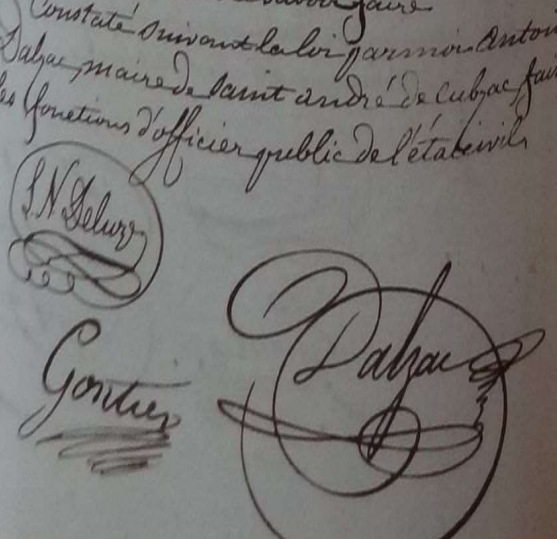 faire
Constaté suivant la loi par moi Anton
Dalzac, maire de Saint andré de Cubzac, fai
les fonctions d'officier public de l'état civil
S N Deluze
Dalzac
Gontier